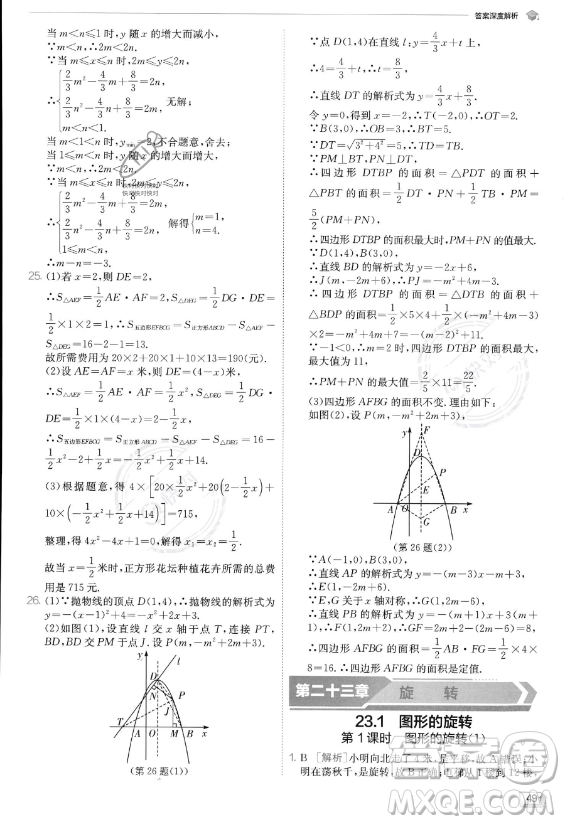 答案深度解析
当 m<n 时，y 随 x 的增大而减小，
∵m≤x≤n 时，2m≤y≤2n，
∴{2/3m²-4/3m+8/3=2n，
2/3n²-4/3n+8/3=2m， 无解；
m<n<1.
不合题意，舍去；
当 1≤m<n 时，y 随 x 的增大而增大，
∵当 m≤x≤n 时，2m≤y≤2n，
∴{2/3m²-4/3m+8/3=2m，
2/3n²-4/3n+8/3=2n， 解得{m=1，
n=4.
1≤m<n，
∴m-n=-3.
25. (1)若 x=2，则 DE=2，
∴S△AEF=1/2AE·AF=2，S△DEG=1/2DG·DE=
1/2×1×2=1，
∴S五边形EFBCG=S正方形ABCD-S△AEF-S△DEG=
16-2-1=13.
故所需费用为 20×2+20×1+10×13=190(元).
(2)设 AE=AF=x 米，则 DE=(4-x)米，
∴S△AEF=1/2AE·AF=1/2x²，S△DEG=1/2DG·
DE=1/2×1×(4-x)=2-1/2x，
∴S五边形EFBCG=S正方形ABCD-S△AEF-S△DEG=16-
1/2x²-(2-1/2x)=-1/2x²+1/2x+14.
(3)根据题意，得 4×[20×1/2x²+20(2-1/2x)+
10×(-1/2x²+1/2x+14)]=715，
整理，得 4x²-4x+1=0，解得 x₁=x₂=1/2.
故当 x=1/2米时，正方形花坛种植花卉所需的总费
用是 715 元.
26. (1)∵抛物线的顶点 D(1,4)，∴抛物线的解析式为
y=-(x-1)²+4=-x²+2x+3.
(2)如图(1)，设直线 l 交 x 轴于点 T，连接 PT，
BD，BD交PM于点 J，设 P(m，-m²+2m+3).
y
l
D
P
J
T
A
O
N
M
B
x
(第 26 题(1))
∵点 D(1,4)在直线 l：y=4/3x+t 上，
∴4=4/3+t，∴t=8/3，
∴直线 DT 的解析式为 y=4/3x+8/3.
令 y=0，得到 x=-2，∴T(-2,0)，∴OT=2，
∵B(3,0)，∴OB=3，∴BT=5.
∵DT=√(3²+4²)=5，∴TD=TB.
∵PM⊥BT，PN⊥DT，
∴四边形 DTBP 的面积=△PDT 的面积+
△PBT 的面积=1/2DT·PN+1/2TB·PM=
5/2(PM+PN).
∴四边形 DTBP 的面积最大时，PM+PN的值最大.
∵直线 BD 的解析式为 y=-2x+6，
∴J(m，-2m+6)，∴PJ=-m²+4m-3.
∵四边形 DTBP 的面积=△DTB 的面积+
△BDP 的面积=1/2×5×4+1/2×(-m²+4m-
3)×2=-m²+4m+7=-(m-2)²+11.
∵-1<0，∴m=2 时，四边形 DTBP 的面积最大，
最大值为 11，
∴PM+PN 的最大值=2/5×11=22/5.
(3)四边形 AFBG 的面积不变. 理由如下：
如图(2)，设 P(m，-m²+2m+3)，
y
F
D
P
E
A
O
B
x
G
(第 26 题(2))
∵A(-1,0)，B(3,0)，
∴直线 AP 的解析式为 y=-(m-3)x-m+3，
∴E(1，-2m+6).
∵E，G 关于 x 轴对称，
∴G(1，2m-6)，
∴直线 PB 的解析式 y=-(m+1)x+3(m+1)，
∴F(1，2m+2)，∴GF=2m+2-(2m-6)=8.
∴四边形 AFBG 的面积=1/2×AB×FG=1/2×4×
8=16. ∴四边形 AFBG 的面积是定值.
第二十三章 旋 转
23.1 图形的旋转
第 1 课时 图形的旋转(1)
1. B [解析] 小明向北走了 4 米，是平移，故 A 错误；小
明在荡秋千，是旋转，故 B 正确；电梯从 1 楼到 12 楼，
49